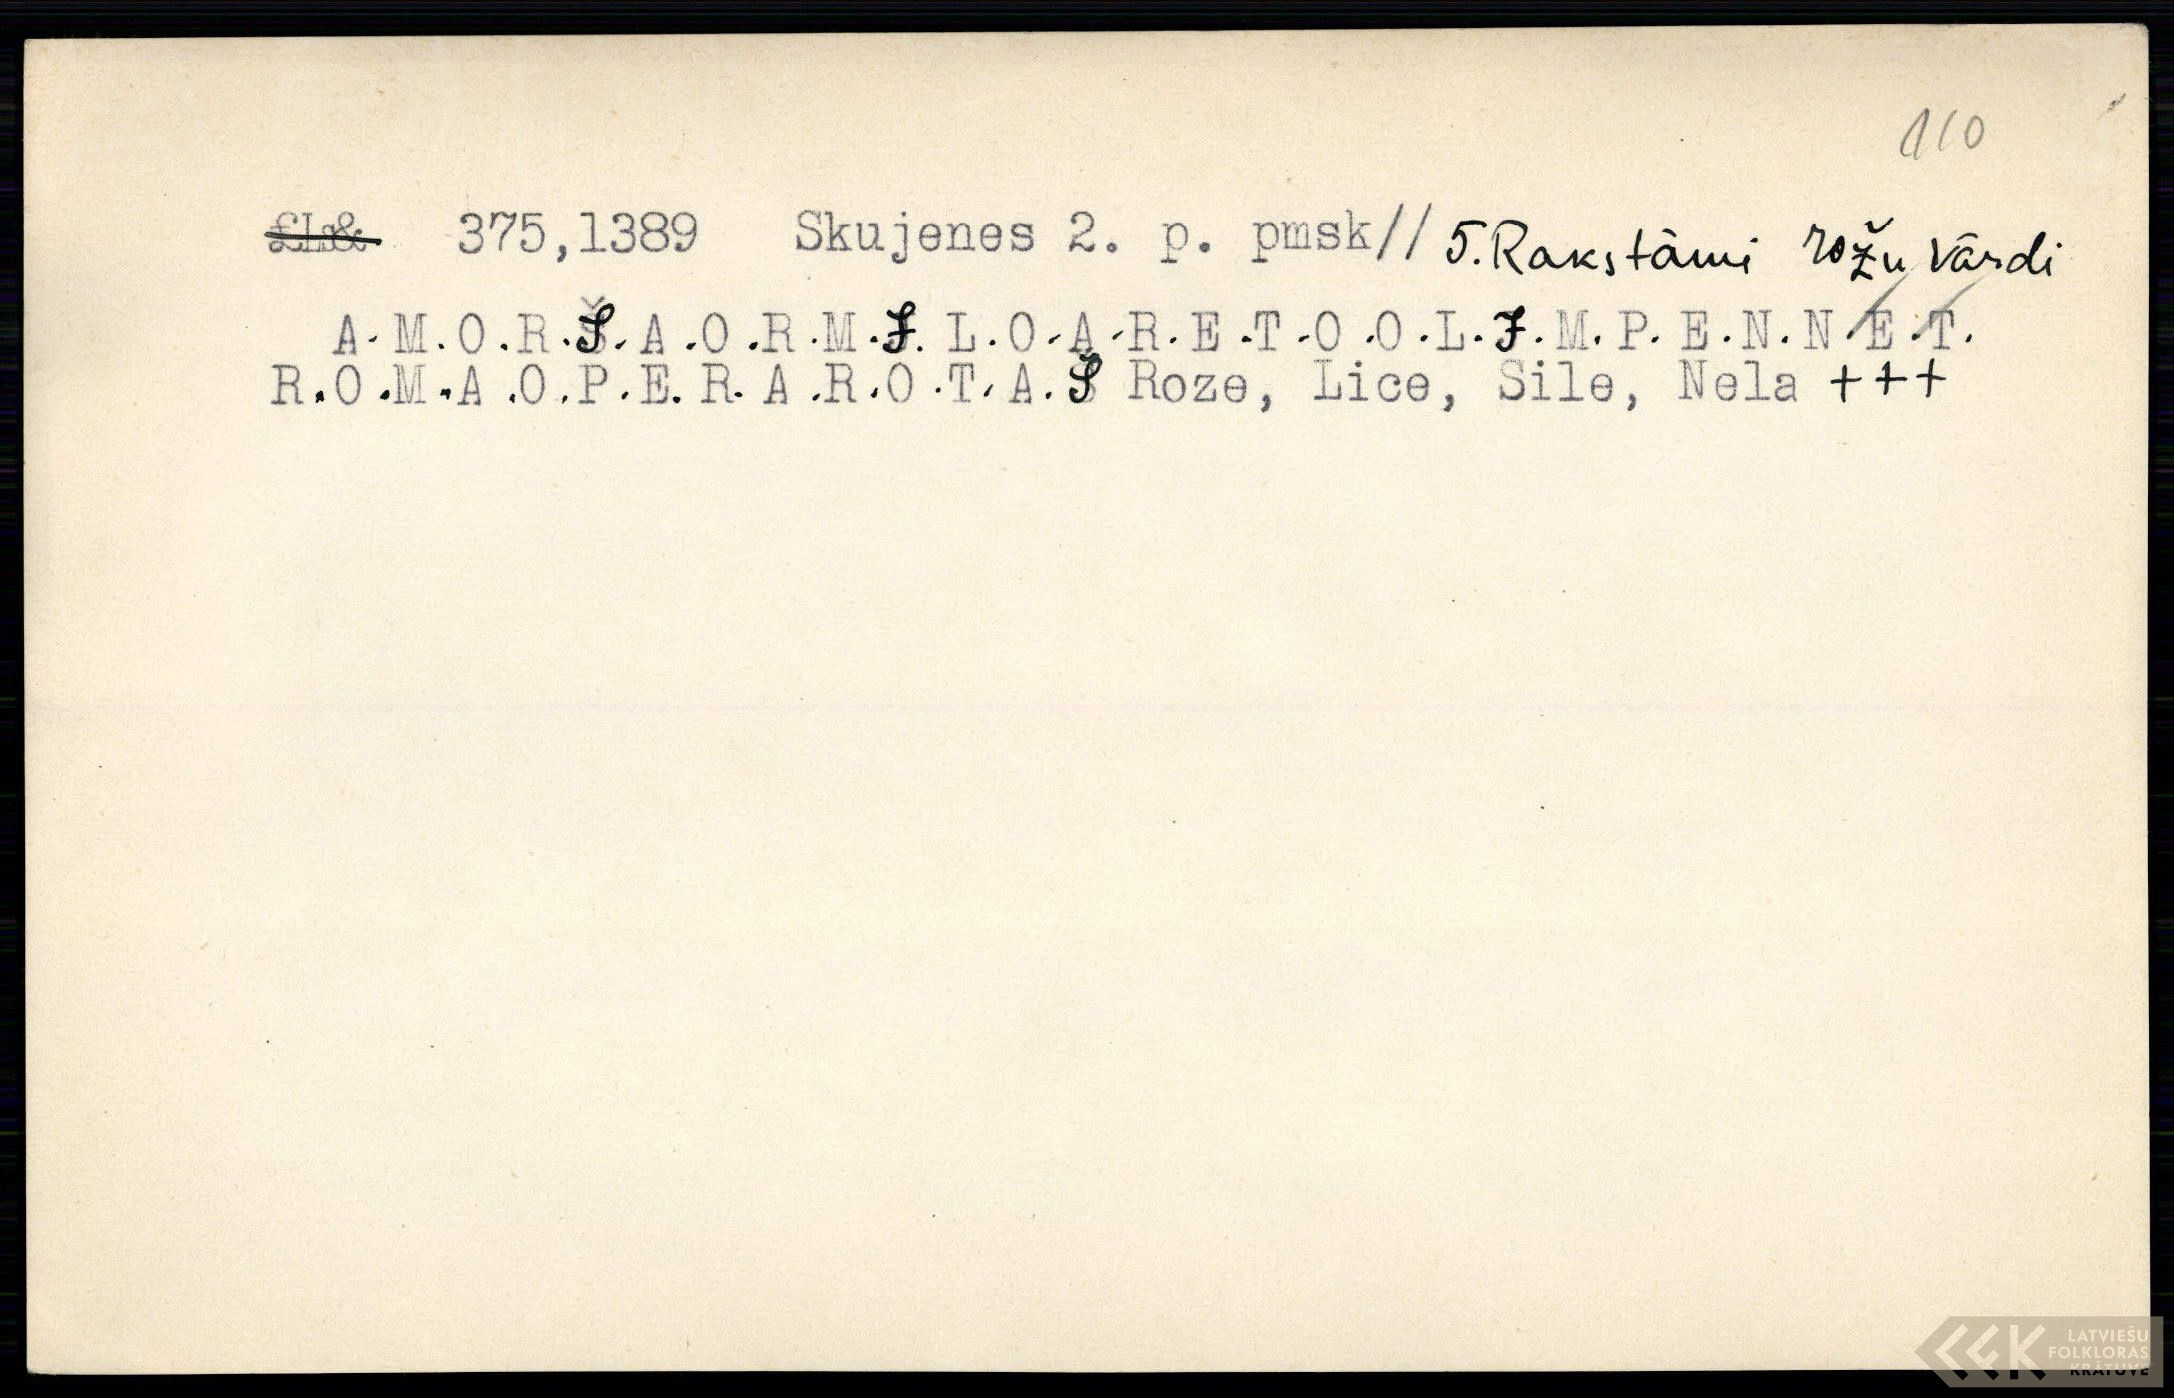 110
375,1389 Skujenes 2. p. pmsk// 5. Rakstāmi rožu vārdi
A.M.O.R.S.A.O.R.M.J.L.O.A.R.E.T.O.O.L.J.M.P.E.N.N.E.T.
R.O.M.A.O.P.E.R.A.R.O.T.A.S Roze, Lice, Sile, Nela +++
LATVIEŠU
FOLKLORAS
KRĀTUVE